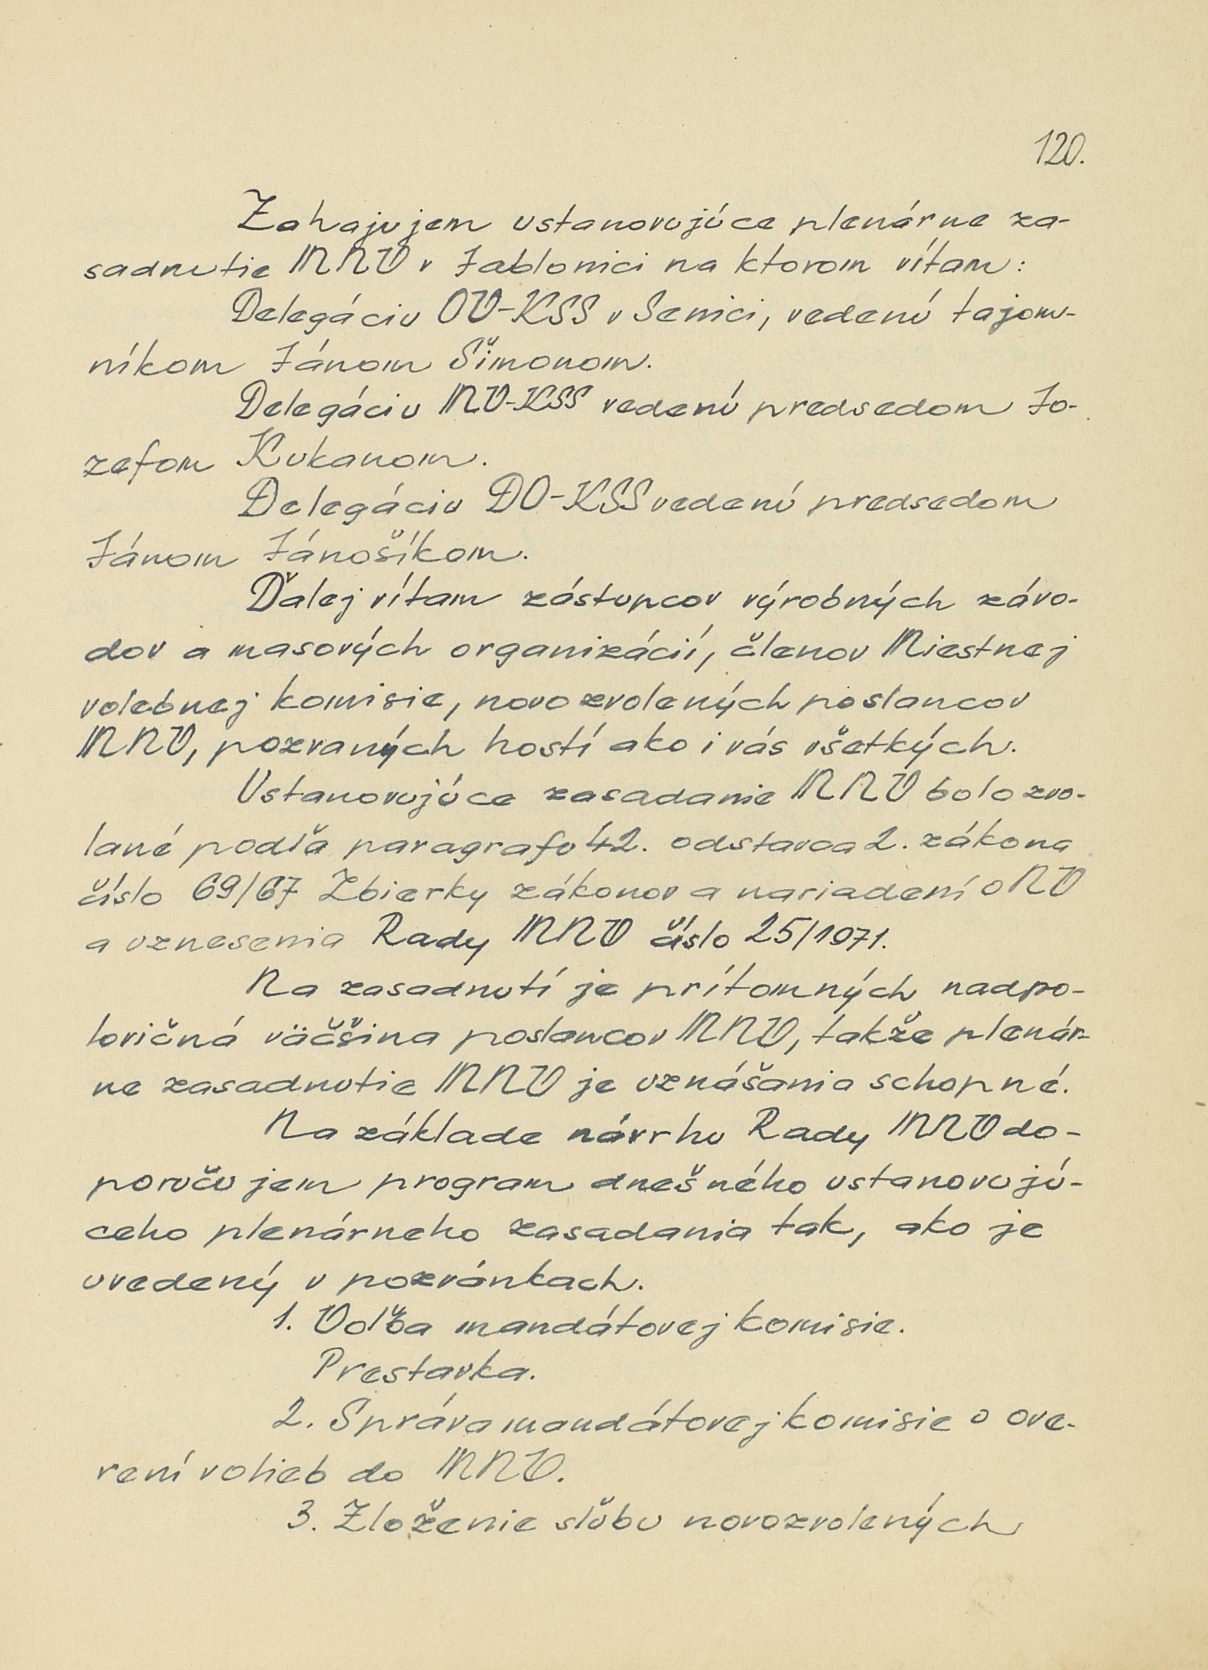 120.
Zahajujem ustanovujúce plenárne za-
sadnutie MNV v Jablonici na ktorom vítam:
Delegáciu OV-KSS v Senici, vedenú tajom-
níkom Jánom Šimonom.
Delegáciu MV-KSS vedenú predsedom Jo-
zefom Kukanom.
Delegáciu DO-KSS vedenú predsedom
Jánom Jánošíkom.
Ďalej vítam zástupcov výrobných závo-
dov a masových organizácií, členov Miestnej
volebnej komisie, novozvolených poslancov
MNV, pozvaných hostí ako i vás všetkých.
Ustanovujúce zasadanie MNV bolo zvo-
lané podľa paragrafu 42. odstavca 2. zákona
číslo 69/67 Zbierky zákonov a nariadení o NV
a uznesenia Rady MNV číslo 25/1971.
Na zasadnutí je prítomných nadpo-
lovičná väčšina poslancov MNV, takže plenár-
ne zasadnutie MNV je uznášania schopné.
Na základe návrhu Rady MNV do-
poručujem program dnešného ustanovujú-
ceho plenárneho zasadania tak, ako je
uvedený v pozvánkach.
1. Voľba mandátovej komisie.
Prestavka.
2. Správa mandátovej komisie o ove-
rení volieb do MNV.
3. Zloženie sľubu novozvolených